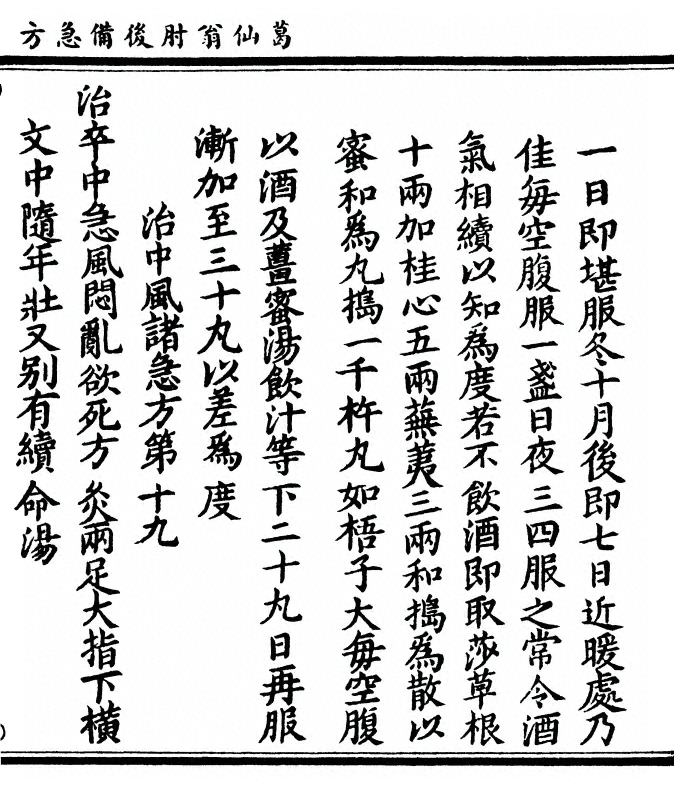 葛仙翁肘後備急方
一日即堪服冬十月後即七日近暖處乃
佳每空腹服一盞日夜三四服之常令酒
氣相續以知爲度若不飲酒即取莎草根
十兩加桂心五兩蕪荑三兩和搗爲散以
蜜和爲丸搗一千杵丸如梧子大每空腹
以酒及薑蜜湯飲汁等下二十丸日再服
漸加至三十丸以差爲度
治中風諸急方第十九
治卒中急風悶亂欲死方灸兩足大指下橫
文中隨年壯又别有續命湯